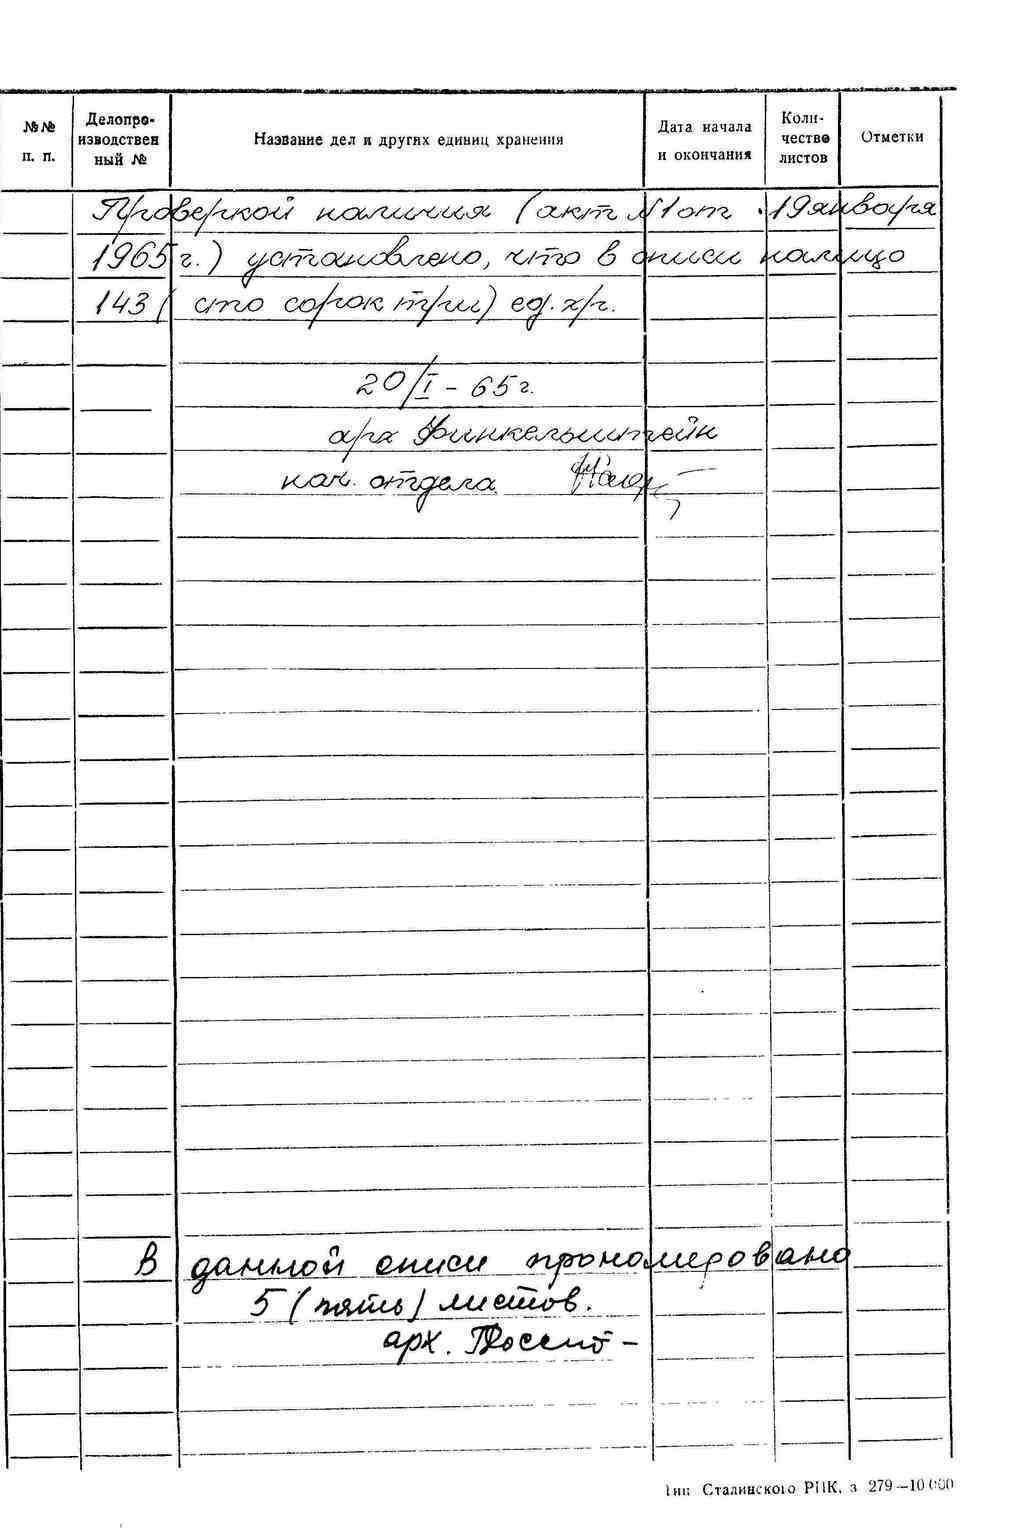 №№ п. п.
Делопро-
изводствен
ный №
Название дел и других единиц хранения
Дата начала
и окончания
Коли-
чество
листов
Отметки
Проверкой наличия (акт №1 от 19 января
1965 г.) установлено, что в описи налицо
143 (сто сорок три) ед. хр.
20/I - 65 г.
арх Финкельштейн
нач. отдела
В данной описи прономеровано
5 (пять) листов.
арх.
Тип Сталинского РПК, з 279—10 000